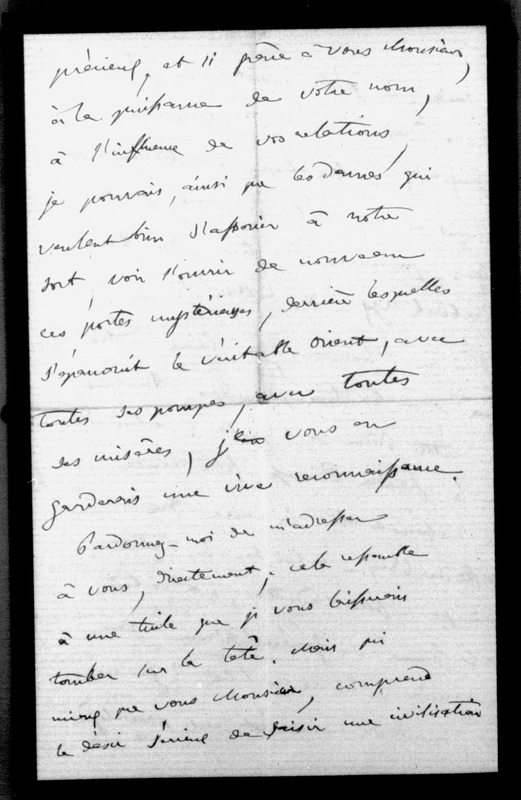 précieux, et si grâce à vous Monsieur,
à la puissance de votre nom,
à l'influence de vos relations,
je pouvais, ainsi que les dames qui
veulent bien s'associer à notre
sort, voir s'ouvrir de nouveau
ces portes mystérieuses, derrière lesquelles
s'épanouit le véritable Orient, avec
toutes ses pompes, avec toutes
ses misères, je vous en
garderais une vive reconnaissance.
Pardonnez-moi de m'adresser
à vous, directement, cela ressemble
à une tuile que je vous laisserais
tomber sur la tête. Mais qui
mieux que vous Monsieur, comprend
le désir sérieux de saisir une civilisation